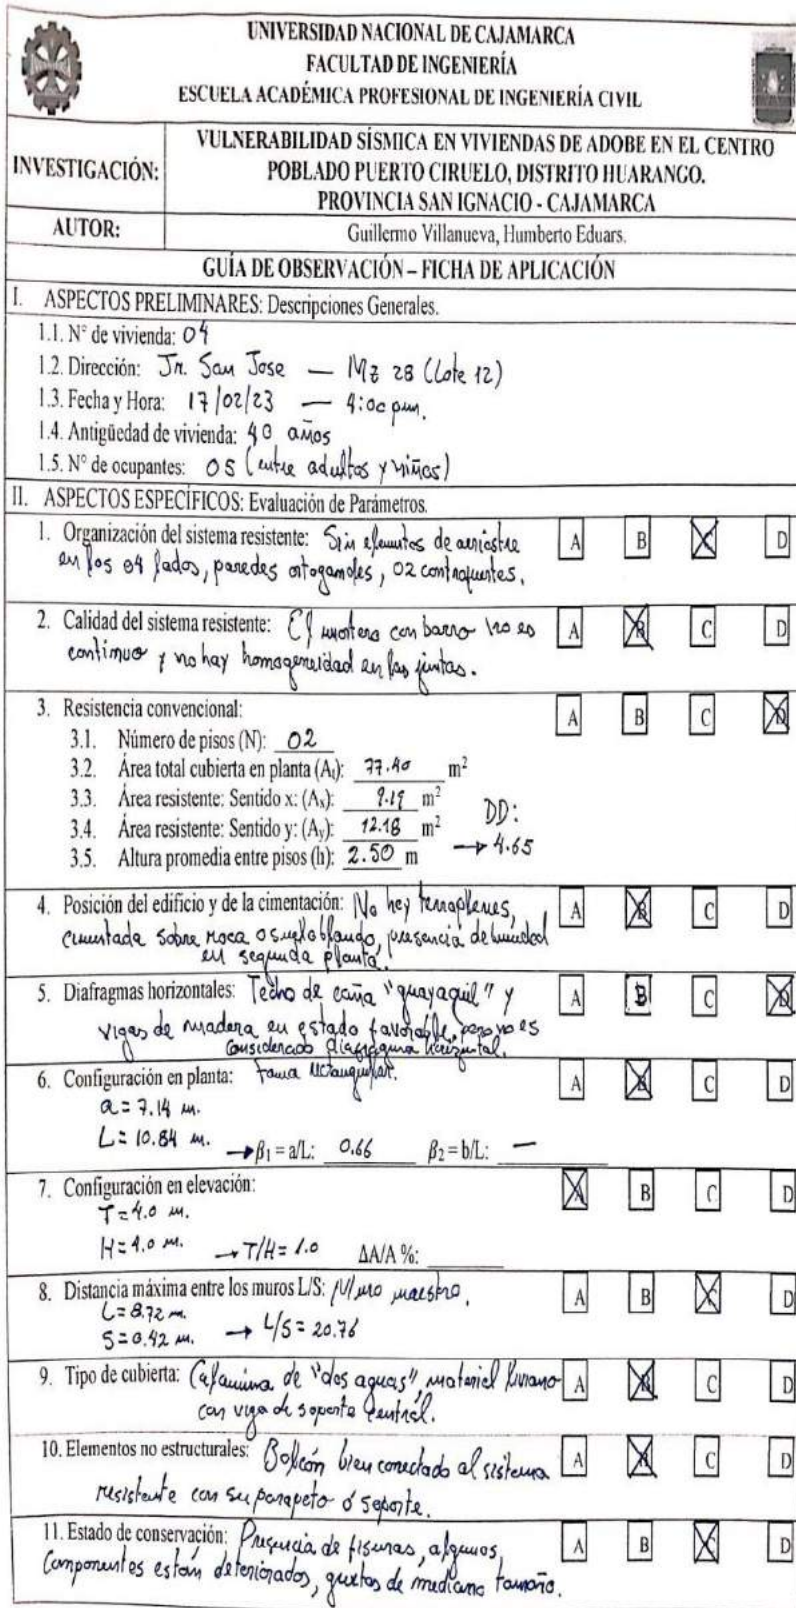 UNIVERSIDAD NACIONAL DE CAJAMARCA
FACULTAD DE INGENIERÍA
ESCUELA ACADÉMICA PROFESIONAL DE INGENIERÍA CIVIL
INVESTIGACIÓN:
VULNERABILIDAD SÍSMICA EN VIVIENDAS DE ADOBE EN EL CENTRO
POBLADO PUERTO CIRUELO, DISTRITO HUARANGO.
PROVINCIA SAN IGNACIO - CAJAMARCA
AUTOR:
Guillermo Villanueva, Humberto Eduars.
GUÍA DE OBSERVACIÓN – FICHA DE APLICACIÓN
I. ASPECTOS PRELIMINARES: Descripciones Generales.
1.1. N° de vivienda: 04
1.2. Dirección: Jr. San Jose — Mz 28 (Lote 12)
1.3. Fecha y Hora: 17/02/23 — 4:00 pm.
1.4. Antigüedad de vivienda: 40 años
1.5. N° de ocupantes: 05 (entre adultos y niños)
II. ASPECTOS ESPECÍFICOS: Evaluación de Parámetros.
1. Organización del sistema resistente: Sin elementos de arriostre A B C D
en los 04 lados, paredes ortogonales, 02 contrafuertes.
2. Calidad del sistema resistente: El mortero con barro no es A B C D
continuo y no hay homogeneidad en las juntas.
3. Resistencia convencional: A B C D
3.1. Número de pisos (N): 02
3.2. Área total cubierta en planta (At): 77.40 m²
3.3. Área resistente: Sentido x: (Ax): 9.19 m²
DD:
3.4. Área resistente: Sentido y: (Ay): 12.18 m²
→ 4.65
3.5. Altura promedia entre pisos (h): 2.50 m
4. Posición del edificio y de la cimentación: No hay terraplenes, A B C D
cimentada sobre roca o suelo blando, presencia de humedad
en segunda planta.
5. Diafragmas horizontales: Techo de caña "guayaquil" y A B C D
vigas de madera en estado favorable, pero no es
considerado diafragma horizontal.
6. Configuración en planta: Forma rectangular. A B C D
a = 7.14 m.
L = 10.84 m. → β1 = a/L: 0.66 β2 = b/L: —
7. Configuración en elevación: A B C D
T = 4.0 m.
H = 4.0 m. → T/H = 1.0 ΔA/A %:
8. Distancia máxima entre los muros L/S: Muro maestro. A B C D
L = 8.72 m.
S = 0.42 m. → L/S = 20.76
9. Tipo de cubierta: Calamina de "dos aguas", material liviano A B C D
con viga de soporte central.
10. Elementos no estructurales: Balcón bien conectado al sistema A B C D
resistente con su parapeto ó soporte.
11. Estado de conservación: Presencia de fisuras, algunos, A B C D
componentes están deteriorados, grietas de mediano tamaño.